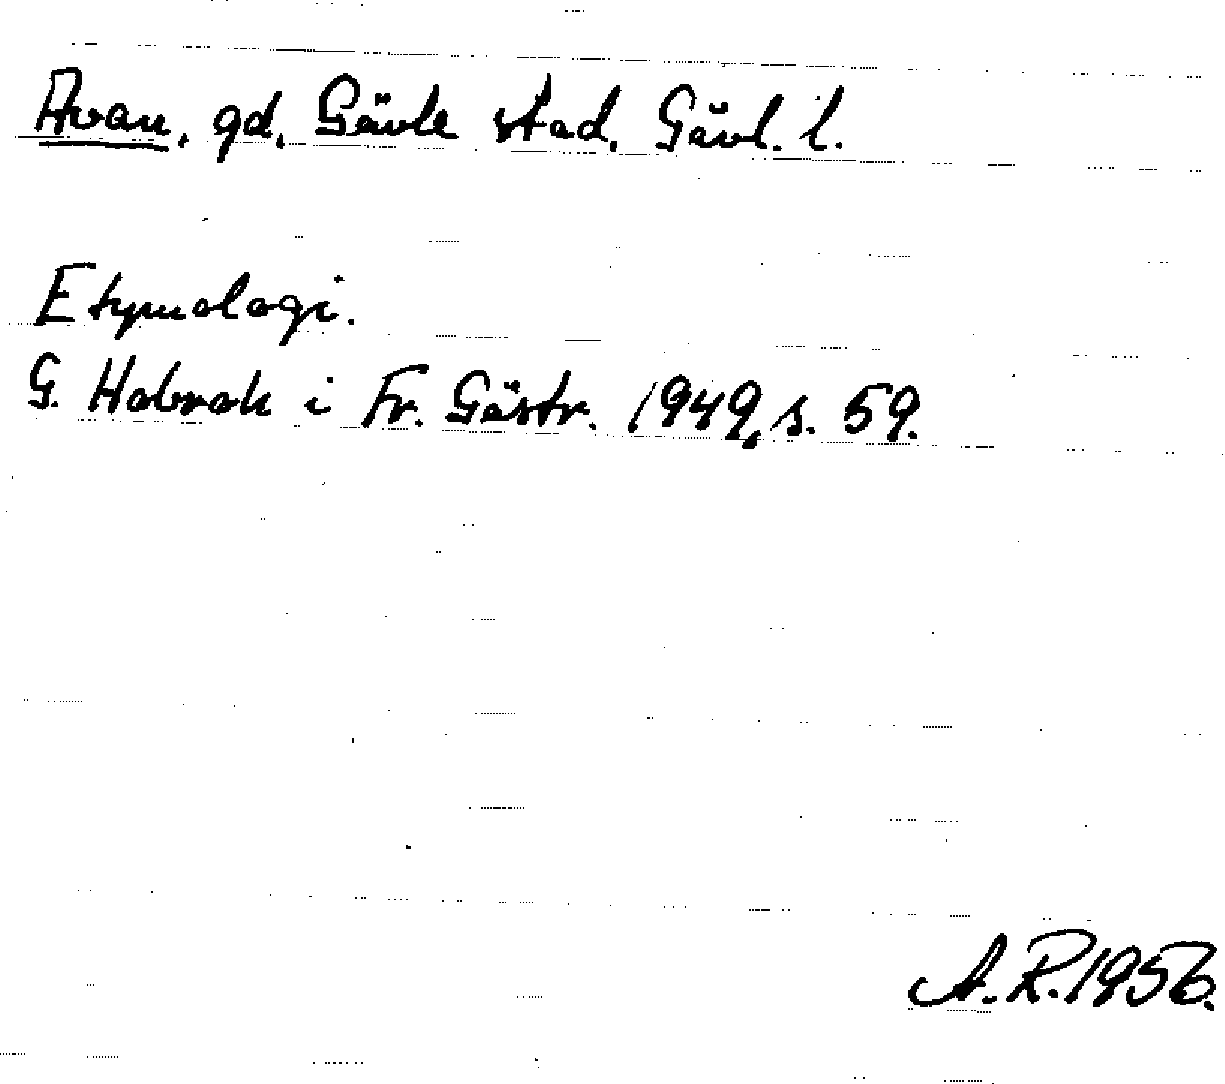 Avan, gd, Gävle stad, Gävl. l.
Etymologi.
G. Hobroh i Fr. Gästr. 1949, s. 59.
A. R. 1956.